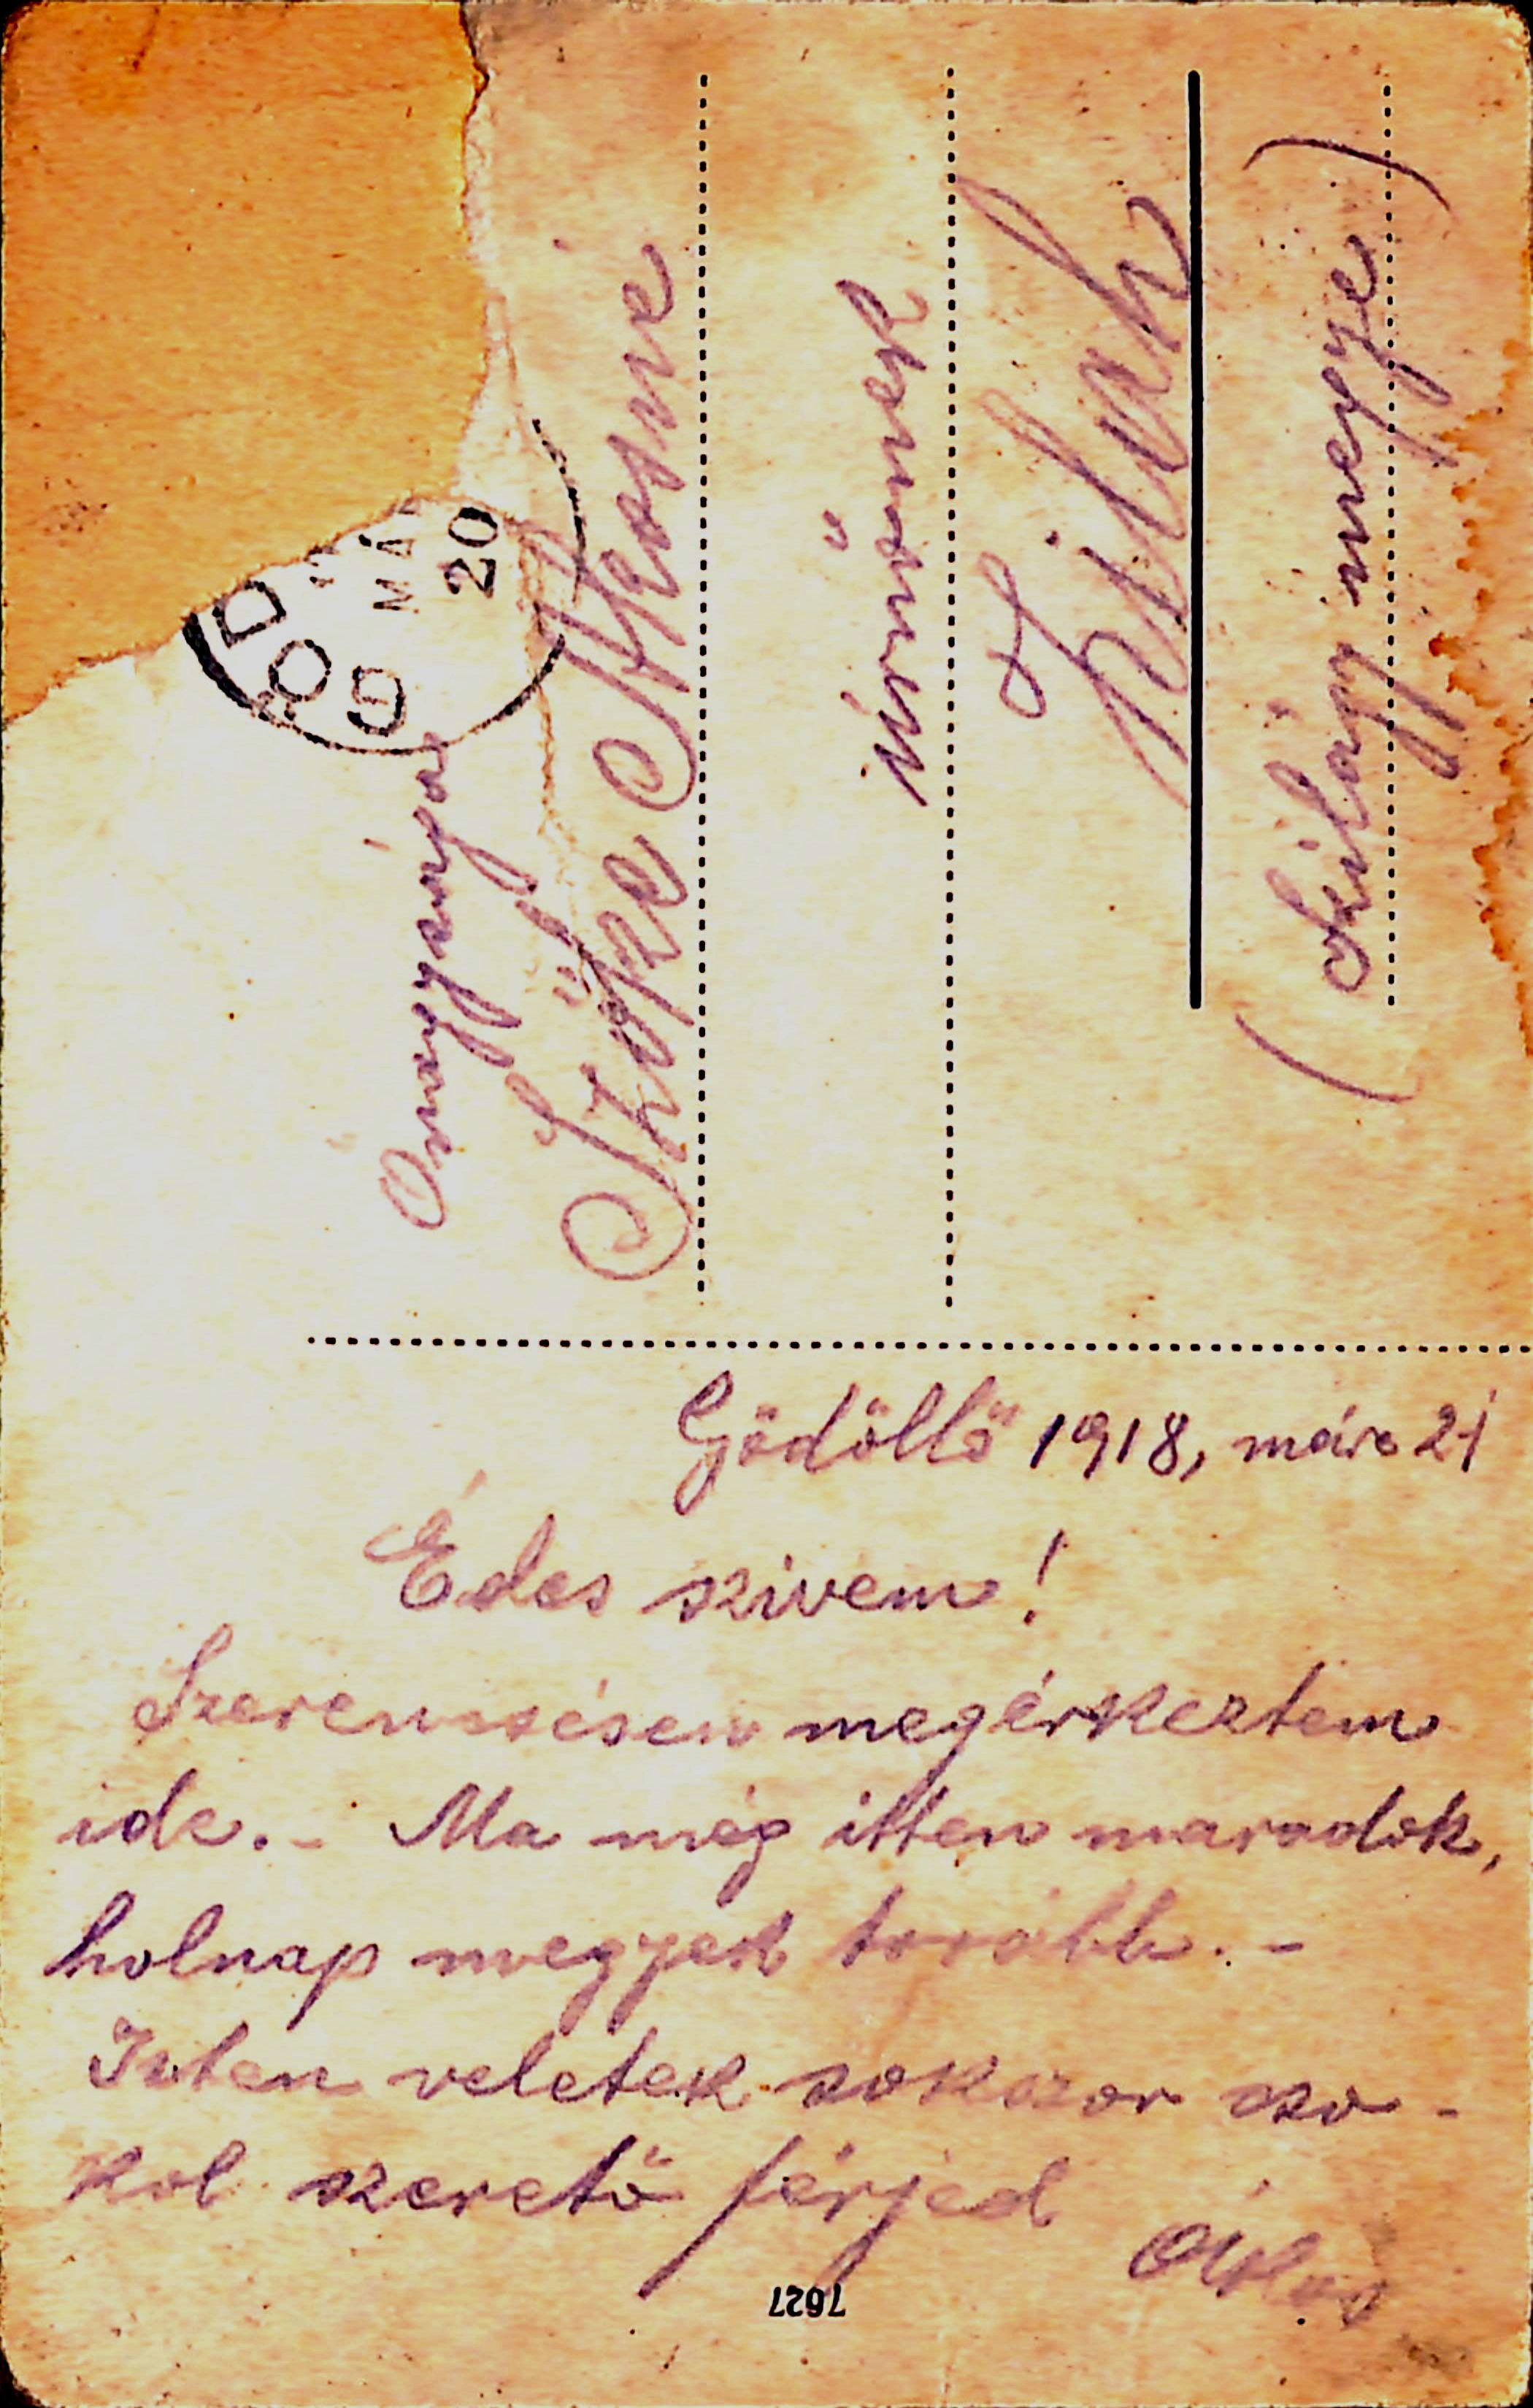 GÖD
MÁ
20
Őnagysága
Szőke Ákosné
úrnőnek
Zilah
(Szilágy megye)
Gödöllő 1918, márc 21
Édes szivem!
Szerencsésen megérkeztem
ide. - Ma még itten maradok,
holnap megyek tovább. -
Isten veletek sokszor cso-
kol szerető férjed
Ákos
7627